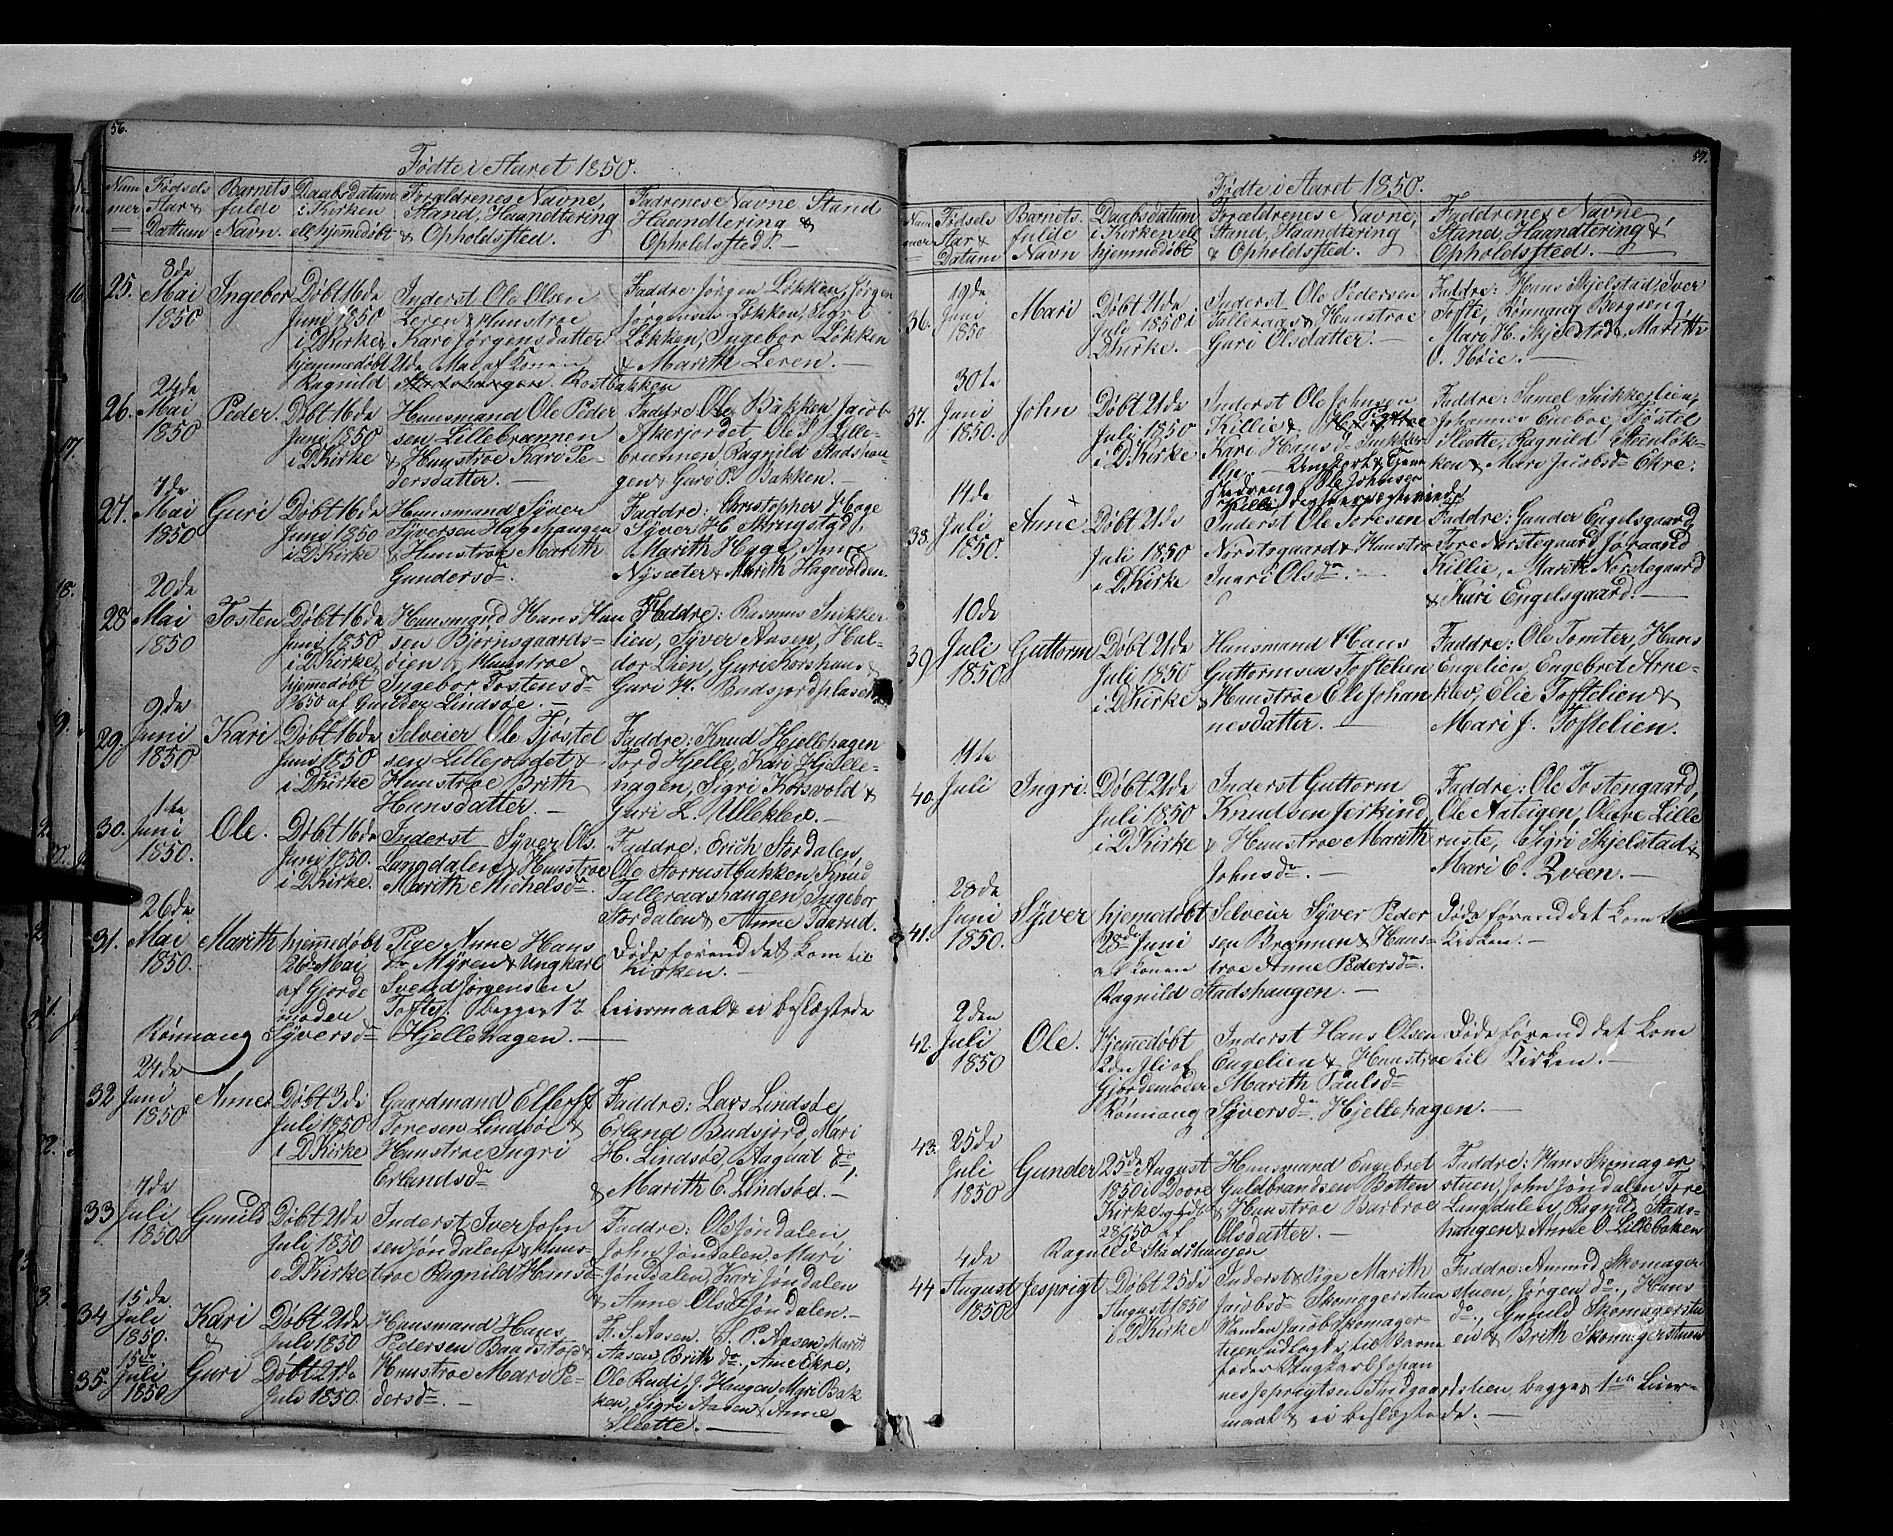 56.
Fødte i Aaret 1850.
Num
mer
Fødsels
Aar &
Dattum
Barnets
fulde
Navn.
Daabsdatum
i Kirken
ell. hjemdøbt
Foraldrenes Navne,
Stand, Haandtering
& Opholdssted.
Fadrenes Navne Stand
Haandtering &
Opholdssted.
25.
8de
Mai
1850
Ingebor
Døbt 16de
Juni 1850
i DKirke
hjemmedøbt 21de Mai af Konen
Ragnild Rostbakken
Inderst Ole Olsen
Leren & Hustroe
Kari Jørgensdatter
Faddre: Jørgen Løkken, Jørgen
Jørgensen Løkken, Sigri
Løkken, Ingebor Løkken
& Marith Leren.
26.
24de
Mai
1850
Peder.
Døbt 16de
Juni 1850
i DKirke
Huusmand Ole Peder
sen Lillebrænnen
& Hustroe Kari Pe-
dersdatter.
Faddre: Ole Bakken, Jacob
Akerjordet, Ole P. Lille-
brænnen, Ragnild Stadshau-
gen & Guro P. Bakken.
27.
7de
Mai
1850
Guri
Døbt 16de
Juni 1850
i DKirke
Huusmand Syver
Syversen Hageshaugen
& Hustroe Marith
Gundersdr.
Faddre: Christopher Hage
Syver H.
Marith Hage, Anne
Nysæter & Marith Hagevolden.
28
20de
Mai
1850
Tosten
Døbt 16de
Juni 1850
i DKirke
hjemmedøbt
af Gunder Lindsøe.
Huusmand Hans Han
sen Bjørnsgaards-
øien & Hustroe
Ingebor Tostensdr
Faddre: Rasmus Snikker
lien, Syver Aasen, Hal-
dor Lien, Guri Korshaug &
Guri H. Budsjordplasen
29.
9de
Juni
1850
Kari
Døbt 16de
Juni 1850
i DKirke
Selveier Ole Tjøstel
sen Lillejordet &
Hustroe Brith
Hansdatter.
Faddre: Knud Hjellehagen
Tord Hjelle, Kari Hjelle-
hagen, Sigri Korsvold &
Guri L. Ullekleu.
30.
1te
Juni
1850.
Ole.
Døbt 16de
Juni 1850.
i DKirke.
Inderst Syver Ols.
Langdalen & Hustroe
Marith Michelsdr.
Faddre: Erich Stordalen,
Ole Storrustbakken, Knud
Talleraashaugen, Ingebor
Stordalen & Anne Taarud.
31.
26de
Mai
1850.
Marith
hjemmedøbt
26de Mai
af Gjorde
moden
Rønnaug Syversdr Hjellehagen.
Pige Anne Hans
dr Myren & Ungkarl
Svend Jørgensen
Tofte. begges 1ste leiermaal & ei beslægtede
Døde førend det kom til
Kirken.
32
24de
Juni
1850
Anne
Døbt 3de
Juli 1850
i DKirke
Gaardmand Elferff
Toresen Lindsøe &
Hustroe Ingri
Erlandsdr
Faddre: Lars Lindsøe,
Erland Budsjord, Mari
H. Lindsøe, Aagaat do,
& Marith E. Lindsøe.
33
7de
Juli
1850
Gunild
Døbt 21de
Juli 1850
i DKirke
Inderst Iver John
sen Jøndalen & Huus-
troe Ragnild Hansdr
Faddre: Ole Jøndalen,
John Jøndalen, Mari
Jøndalen, Kari Jøndalen
& Anne Olsdr Jøndalen.
34
15de
Juli
1850.
Kari
&
Døbt 21de
Juli 1850
Huusmand Hans
Pedersen Baadstøe &
Hustroe Mari Pe-
dersdr.
F. S. Aasen, S. P. Aasen, Marit
Aasen, Brith do., Anne Ekre,
Ole Rudi, J. Haugen, Mari Bak
ken, Sigri Aasen & Anne
Sletten.
35.
15de
Juli
1850
Guri
Døbt 21de
Juli 1850.
57.
Fødte i Aaret 1850.
Num
mer
Fødsels
Aar &
Datum
Barnets.
fulde
Navn
Daabsdatum
i Kirken ell
hjemmedøbt
Forældrenes Navne,
Stand, Haandtering
& Opholdssted.
Faddrenes Navne
Stand, Haandtering &
Opholdssted.
36.
19de
Juni
1850
Mari
Døbt 21de
Juli 1850 i
DKirke.
Inderst Ole Pedersen
Talleraas & Hustroe
Guri Olsdatter.
Faddre: Hans Skjelstad, Iver
Tofte, Rønnaug Bergseng,
Mari H. Skjelstad & Marith
O. Høie.
37.
30te
Juni
1850.
John
Døbt 21de
Juli 1850
i DKirke
Inderst Ole Johnsen
Killie & Pige
Kari Hansdr Snikker
lien. Ungkarl &
Ole Johnsen
Killi
Faddre: Samel Snikkerlien,
Johannes Eneboe, Tjøstel
Slette, Ragnild Stenløk-
ken & Mari Jacobsdr Ekre.
38.
14de
Juli
1850.
Anne
Døbt 21de
Juli 1850
i DKirke
Inderst Ole Toresen
Norstegaard & Hustro
Ingri Olsdr.
Faddre: Gunder Engelsgaard
Tore Norstegaard, Joraand
Killie, Marith Norstegaard
& Kari Engelsgaard.
39
10de
Juli
1850
Guttorm
Døbt 21de
Juli 1850
i DKirke
Huusmand Hans
Guttormsen Toftelien
& Hustroe Eli Johan
nesdatter.
Faddre: Ole Tomter, Hans
Engelien, Engebret Arne-
klev, Elie Toftelien &
Mari J. Toftelien.
40.
11te
Juli
Ingri.
Døbt 21de
Juli 1850
i DKirke
Inderst Guttorm
Knudsen Jerkind
& Hustroe Marith
Johnsdr.
Faddre: Ole Tostengaard,
Ole Aateigen, Olave Lille
ruste, Sigri Skjelstad &
Mari E. Tveen.
41.
28de
Juni
1850.
Syver
hjemedøbt
28de Juni
af Konen
Ragnild Stadshaugen.
Selveier Syver Peder
sen Brennen & Hus-
troe Anne Pedersdr.
Døde førend det kom til
Kirken.
42.
2den
Juli
1850
Ole.
Hjemedøbt
2den Juli af
Gjordemoder
Rønnaug Syversdr. Hjellehagen.
Inderst Hans Olsen
Engelien & Hustroe
Marith Paulsdr
Døde førend det kom
til Kirken.
43.
25de
Juli
1850
Gunder
25de August
1850 i Dovre
Kirke
af
Ragnild Stadshaugen
Huusmand Engebret
Guldbrandsen Botten
& Hustroe Barbroe
Olsdatter.
Faddre: Hans Skomager
stuen, John Jøndalen, Tore
Langdalen, Ragnild Stads-
haugen & Anne O. Lillebakken
44
4de
August
1850
Jesprigt
Døbt 25de
August 1850
i DKirke
Inderst & Pige Marith
Jacobsdr Skomagerstuen
Manden Jacob Skomager-
stuen udlagt til Barne
fader Ungkarl Johan
nes Jesprigtsen
lien, begges 1ste Leier-
maal & ei beslægtede.
Faddre: Amund Skomager
stuen, Jørgen do., Hans
do., Gunild Skomagerstu
en & Brith Skomagerstuen